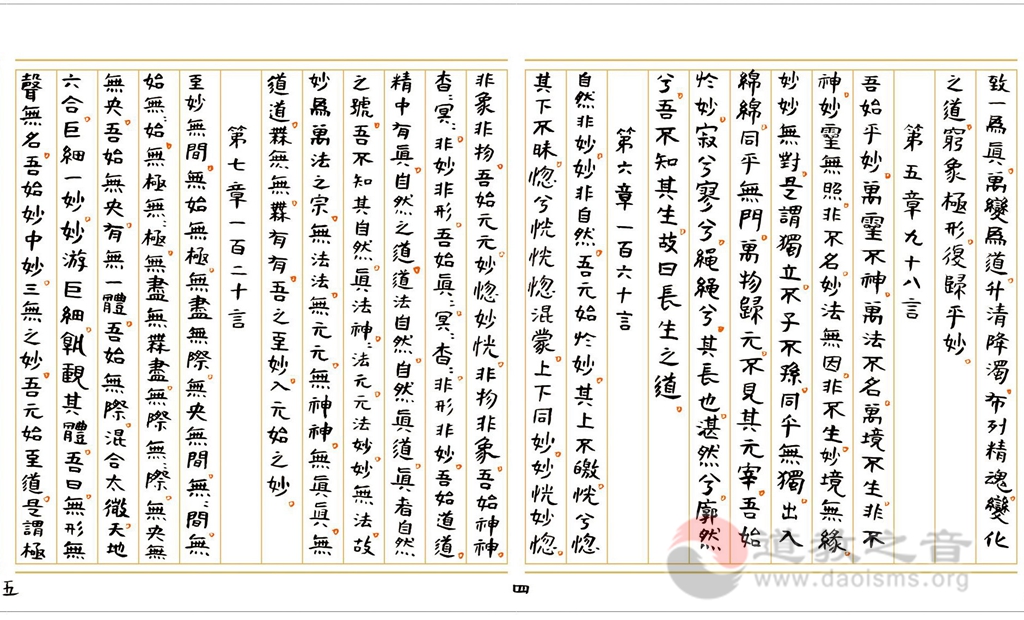 致一爲眞。萬變爲道升清降濁。布列精魂。變化
之道。窮象極形。復歸乎妙。
第五章九十八言
吾始乎妙。萬靈不神。萬法不名。萬境不生。非不
神。妙靈無照。非不名。妙法無因。非不生。妙境無緣。
妙妙無對。是謂獨立。不子不孫。同乎無獨。出入
綿綿。同乎無門。萬物歸元。不見其元宰。吾始
於妙。寂兮寥兮。繩繩兮。其長也。湛然兮。廓然
兮。吾不知其生。故曰長生之道。
第六章一百六十言
自然非妙。妙非自然。吾元始於妙。其上不皦。恍兮惚
其下不昧。惚兮恍。恍惚混蒙。上下同妙。妙恍妙惚。
四
非象非物。吾始元元。妙惚妙恍。非物非象。吾始神神
杳〻冥〻。非妙非形。吾始眞〻。冥〻杳〻。非形非妙。吾始道道。
精中有眞。自然之道。道法自然。自然眞道。眞者自然
之號。吾不知其自然。眞〻法神〻。法元元法妙。妙無法。故
妙爲萬法之宗。無法法。無元元。無神神。無眞眞。無
道道。橆無無橆。有有。吾之至妙。入元始之妙。
第七章一百二十言
至妙無間。無始無極。無盡無際。無央無間。無〻間無
始。無〻始無極。無〻極無盡。無橆盡無際。無〻際無央。無
無央。吾始無央。有無一體。吾始無際。混合太微。天地
六合。巨細一妙。妙游巨細。孰觀其體。吾曰無形無
聲無名。吾始妙中妙。三無之妙。吾元始至道。是謂極
五
道教之音
www.daoisms.org